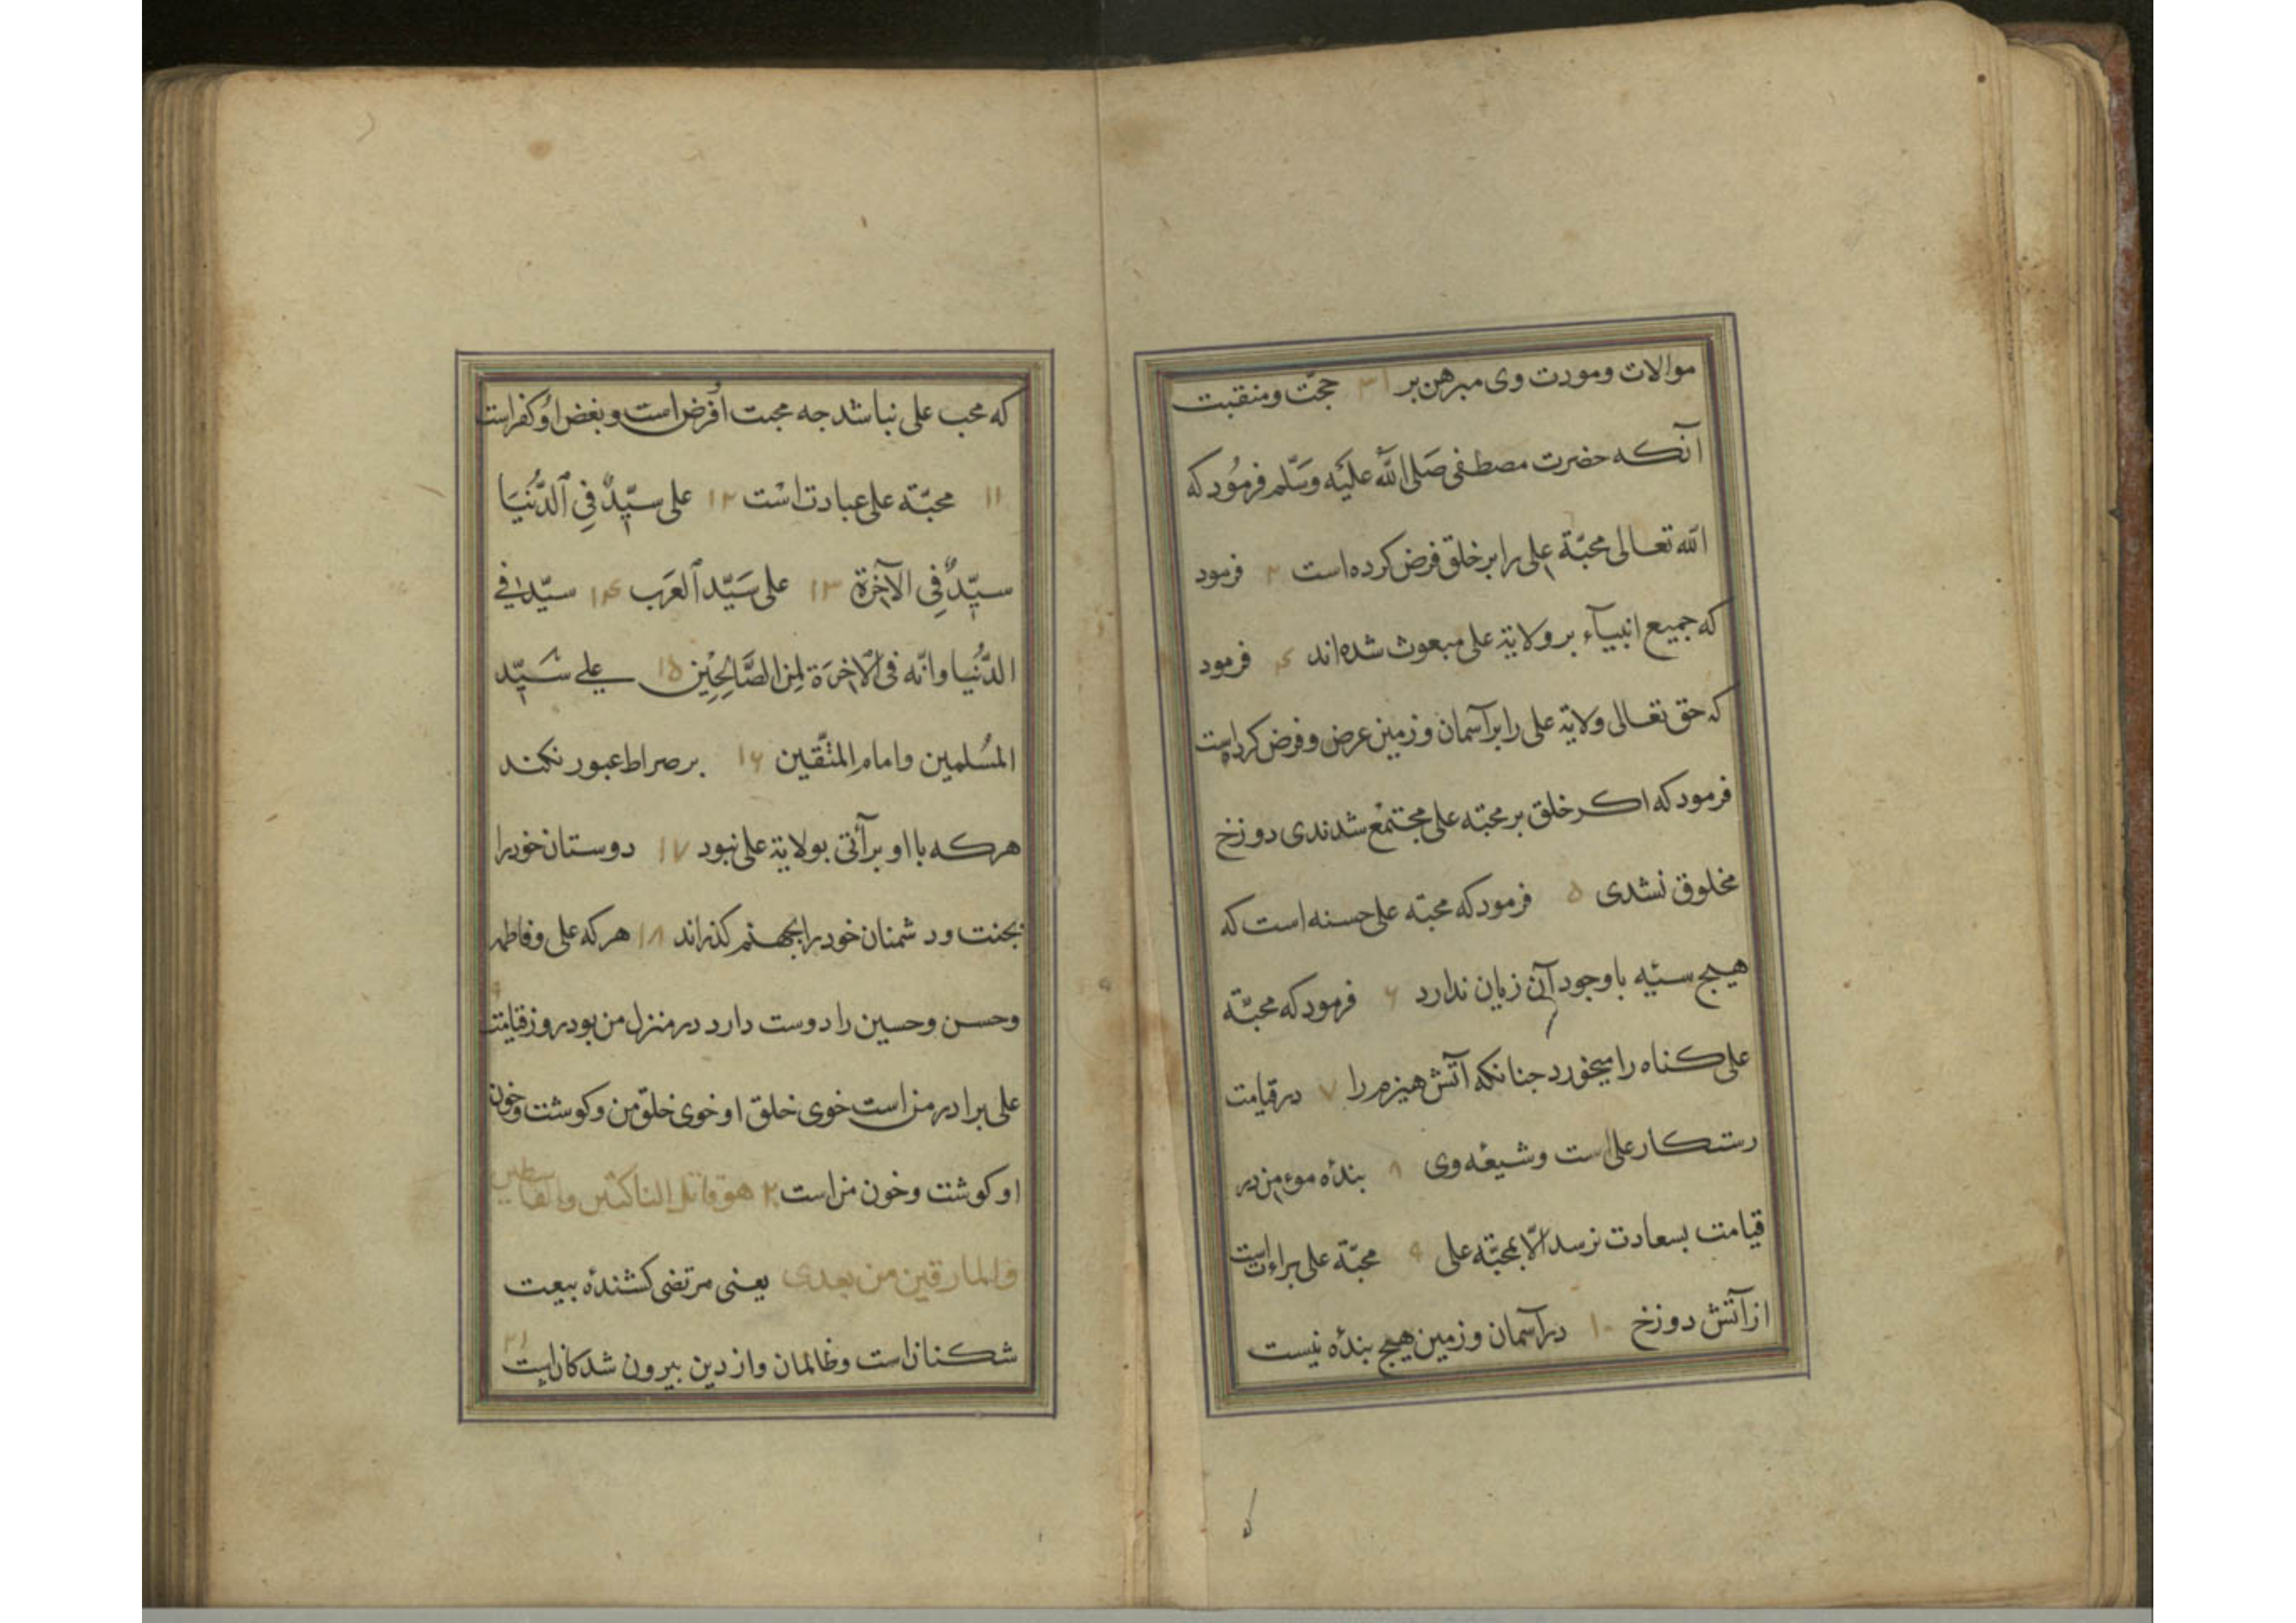 موالات ومودت وی مبرهن بر ۳۱ حجّت ومنقبت
آنکه حضرت مصطفی صَلی اللّه علیَه وَسَلّم فرمُود که
اللّه تعالی محبّة علی را بر خلق فرض کرده است ۲ فرمود
که جمیع انبیآء بر ولایة علی مبعوث شده اند ۴ فرمود
که حق تعالی ولایة علی را بر آسمان وزمین عرض وفرض کرده است
فرمود که اکر خلق بر محبّه علی مجتمع شدندی دوزخ
مخلوق نشدی ۵ فرمود که محبّه علی حسنه است که
هیج سیئه با وجود آن زیان ندارد ۶ فرمود که محبّة
علی کناه را میخورد جنانکه آتش هیزم را ۷ در قیامت
رستکار علی است وشیعهٔ وی ۸ بندهٔ موءمن در
قیامت بسعادت نرسد الّا بمحبّه علی ۹ محبّة علی براءت است
از آتش دوزخ ۱۰ در آسمان وزمین هیج بندهٔ نیست
که محب علی نباشد جه محبت اُفرض است وبغض اوُ کفر است
۱۱ محبّة علی عبادت است ۱۲ علی سیّدٌ فِی الدُّنیَا
سیّدٌ فِی الآخرَة ۱۳ علی سَیّد العَرَب ۱۴ سیّدا فی
الدُّنیا وانّه فی الاخرَة لمِن الصَّالِحِین ۱۵ علی سَیّد
المسُلمین وامام المتّقین ۱۶ بر صراط عبور نکند
هرکه با او برآتی بولایة علی نبود ۱۷ دوستان خود را
بجنت ودشمنان خود را بجهنم کذراند ۱۸ هرکه علی وفاطمه
وحسن وحسین را دوست دارد در منزل من بود روز قیامت ۹
علی برادر من است خوی خلق او خوی خلق من وکوشت وخون
او کوشت وخون من است ۲۰ هو قاتل الناکثین والقاسطین
والمارقین من بعدی یعنی مرتضی کشندهٔ بیعت
شکنان است وظالمان واز دین بیرون شدکان است ۲۱